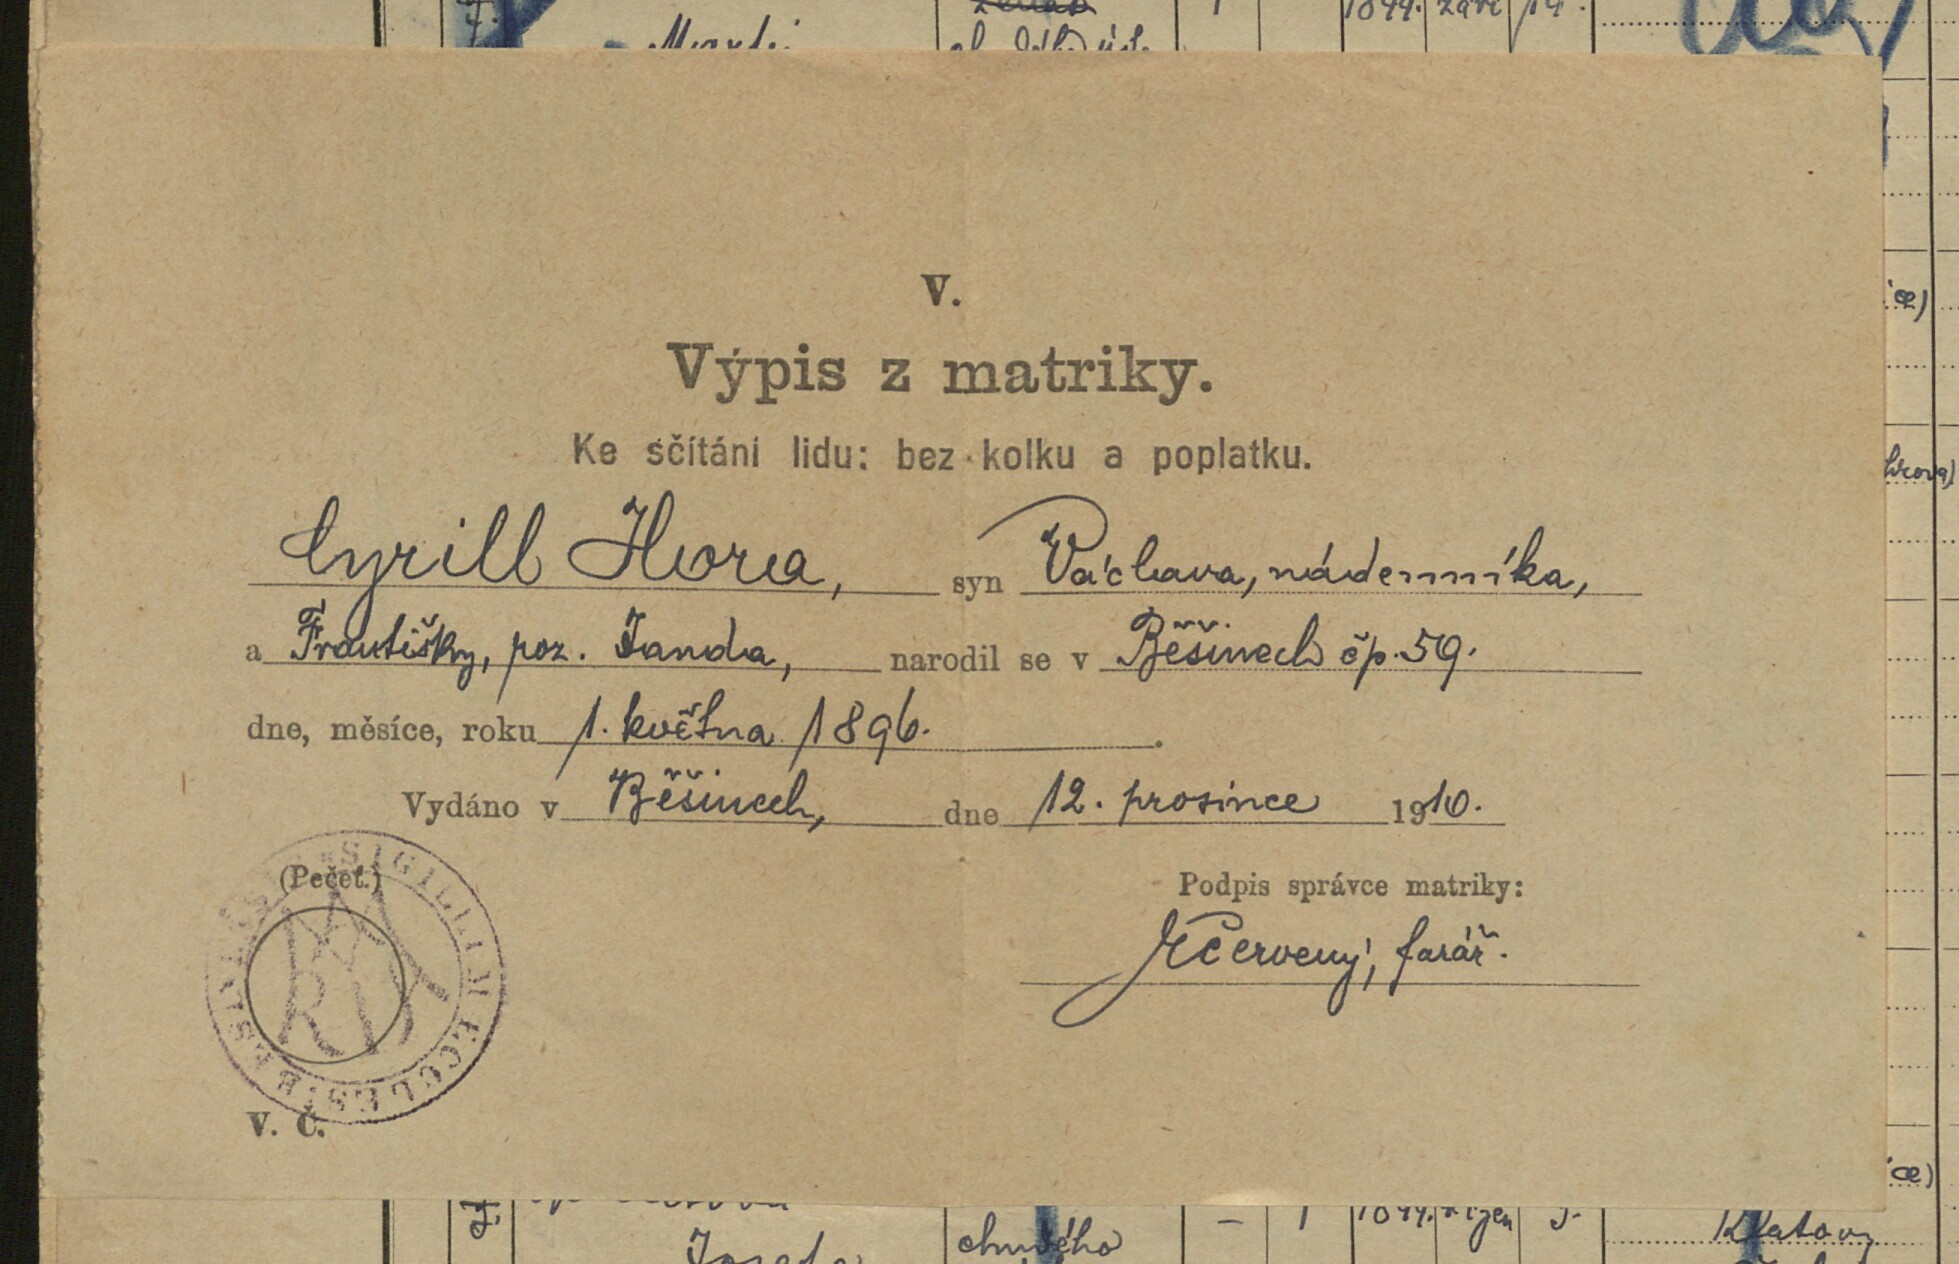 1899. září 14.
V.
Výpis z matriky.
Ke sčítání lidu: bez kolku a poplatku.
Cyrill Hora, syn Václava, nádenníka,
a Františky, poz. Janda, narodil se v Běšinech čp. 59.
dne, měsíce, roku 1. května 1896.
Vydáno v Běšinech, dne 12. prosince 1910.
(Pečeť.)
SIGILLUM ECCLESIÆ
Podpis správce matriky:
Červený, farář.
V. Č.
Josefa
chudého
Klatovy